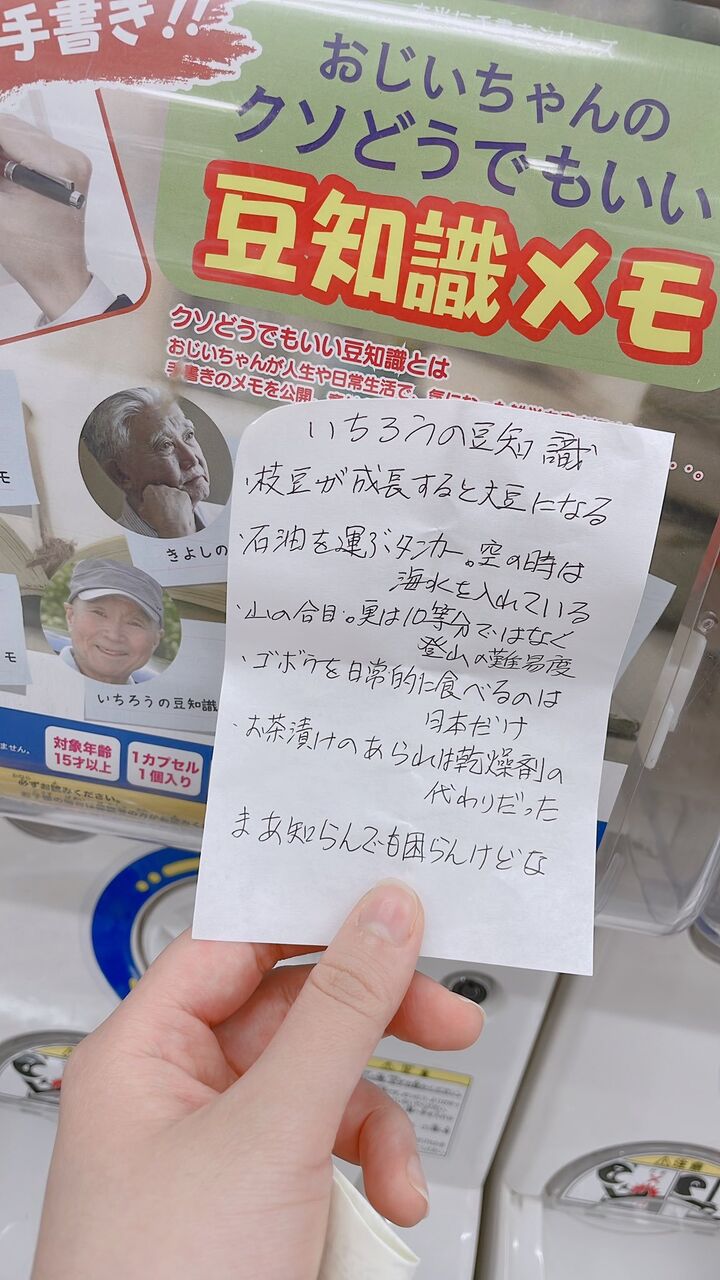 手書き!!
おじいちゃんの
クソどうでもいい
豆知識メモ
クソどうでもいい豆知識とは
おじいちゃんが人生や日常生活で、気になった
手書きのメモを公開。
きよしの
いちろうの豆知識
モ
モ
ません。
対象年齢
15才以上
1カプセル
1個入り
必ずお読みください。
いちろうの豆知識
・枝豆が成長すると大豆になる
・石油を運ぶタンカー。空の時は
海水を入れている
・山の合目。実は10等分ではなく
登山の難易度
・ゴボウを日常的に食べるのは
日本だけ
・お茶漬けのあられは乾燥剤の
代わりだった
まあ知らんでも困らんけどな
大注意